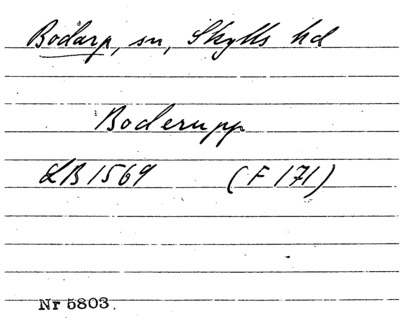 Bodarp, sn, Skytts hd
Boderupp
LB 1569 (F 171)
Nr 5803.